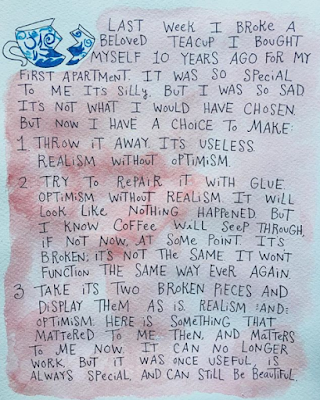 LAST WEEK I BROKE A
BELOVED TEACUP I BOUGHT
MYSELF 10 YEARS AGO FOR MY
FIRST APARTMENT. IT WAS SO SPECIAL
TO ME. IT'S SILLY, BUT I WAS SO SAD.
IT'S NOT WHAT I WOULD HAVE CHOSEN.
BUT NOW I HAVE A CHOICE TO MAKE:
1 THROW IT AWAY. IT'S USELESS.
REALISM WITHOUT OPTIMISM.
2 TRY TO REPAIR IT WITH GLUE.
OPTIMISM WITHOUT REALISM. IT WILL
LOOK LIKE NOTHING HAPPENED. BUT
I KNOW COFFEE WILL SEEP THROUGH,
IF NOT NOW, AT SOME POINT. IT'S
BROKEN; IT'S NOT THE SAME. IT WON'T
FUNCTION THE SAME WAY EVER AGAIN.
3 TAKE ITS TWO BROKEN PIECES AND
DISPLAY THEM AS IS. REALISM :AND:
OPTIMISM. HERE IS SOMETHING THAT
MATTERED TO ME THEN, AND MATTERS
TO ME NOW. IT CAN NO LONGER
WORK, BUT IT WAS ONCE USEFUL, IS
ALWAYS SPECIAL, AND CAN STILL BE BEAUTIFUL.